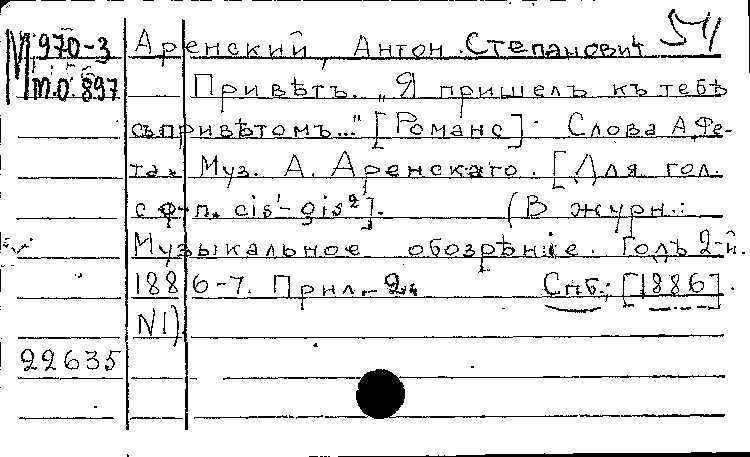 М 970-3 Аренский, Антон Степанович 54
т.о. 897 Привѣтъ. „Я пришелъ къ тебѣ
съ привѣтомъ..." [Романс]. Слова А. Фе-
та. Муз. А. Аренскаго. [Для гол.
с ф-п. cis¹-gis²]. (В журн.:
Музыкальное обозрѣніе. Годъ 2-й.
1886-7. Прил. 2. Спб.; [1886].
N1)
22635